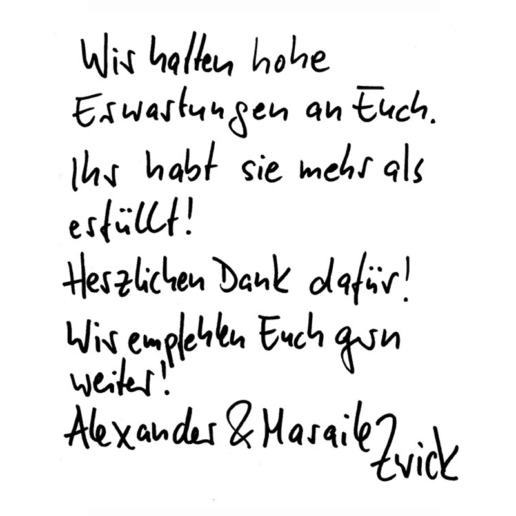 Wir hatten hohe
Erwartungen an Euch.
Ihr habt sie mehr als
erfüllt!
Herzlichen Dank dafür!
Wir empfehlen Euch gern
weiter!
Alexander & Maraile
Zvick